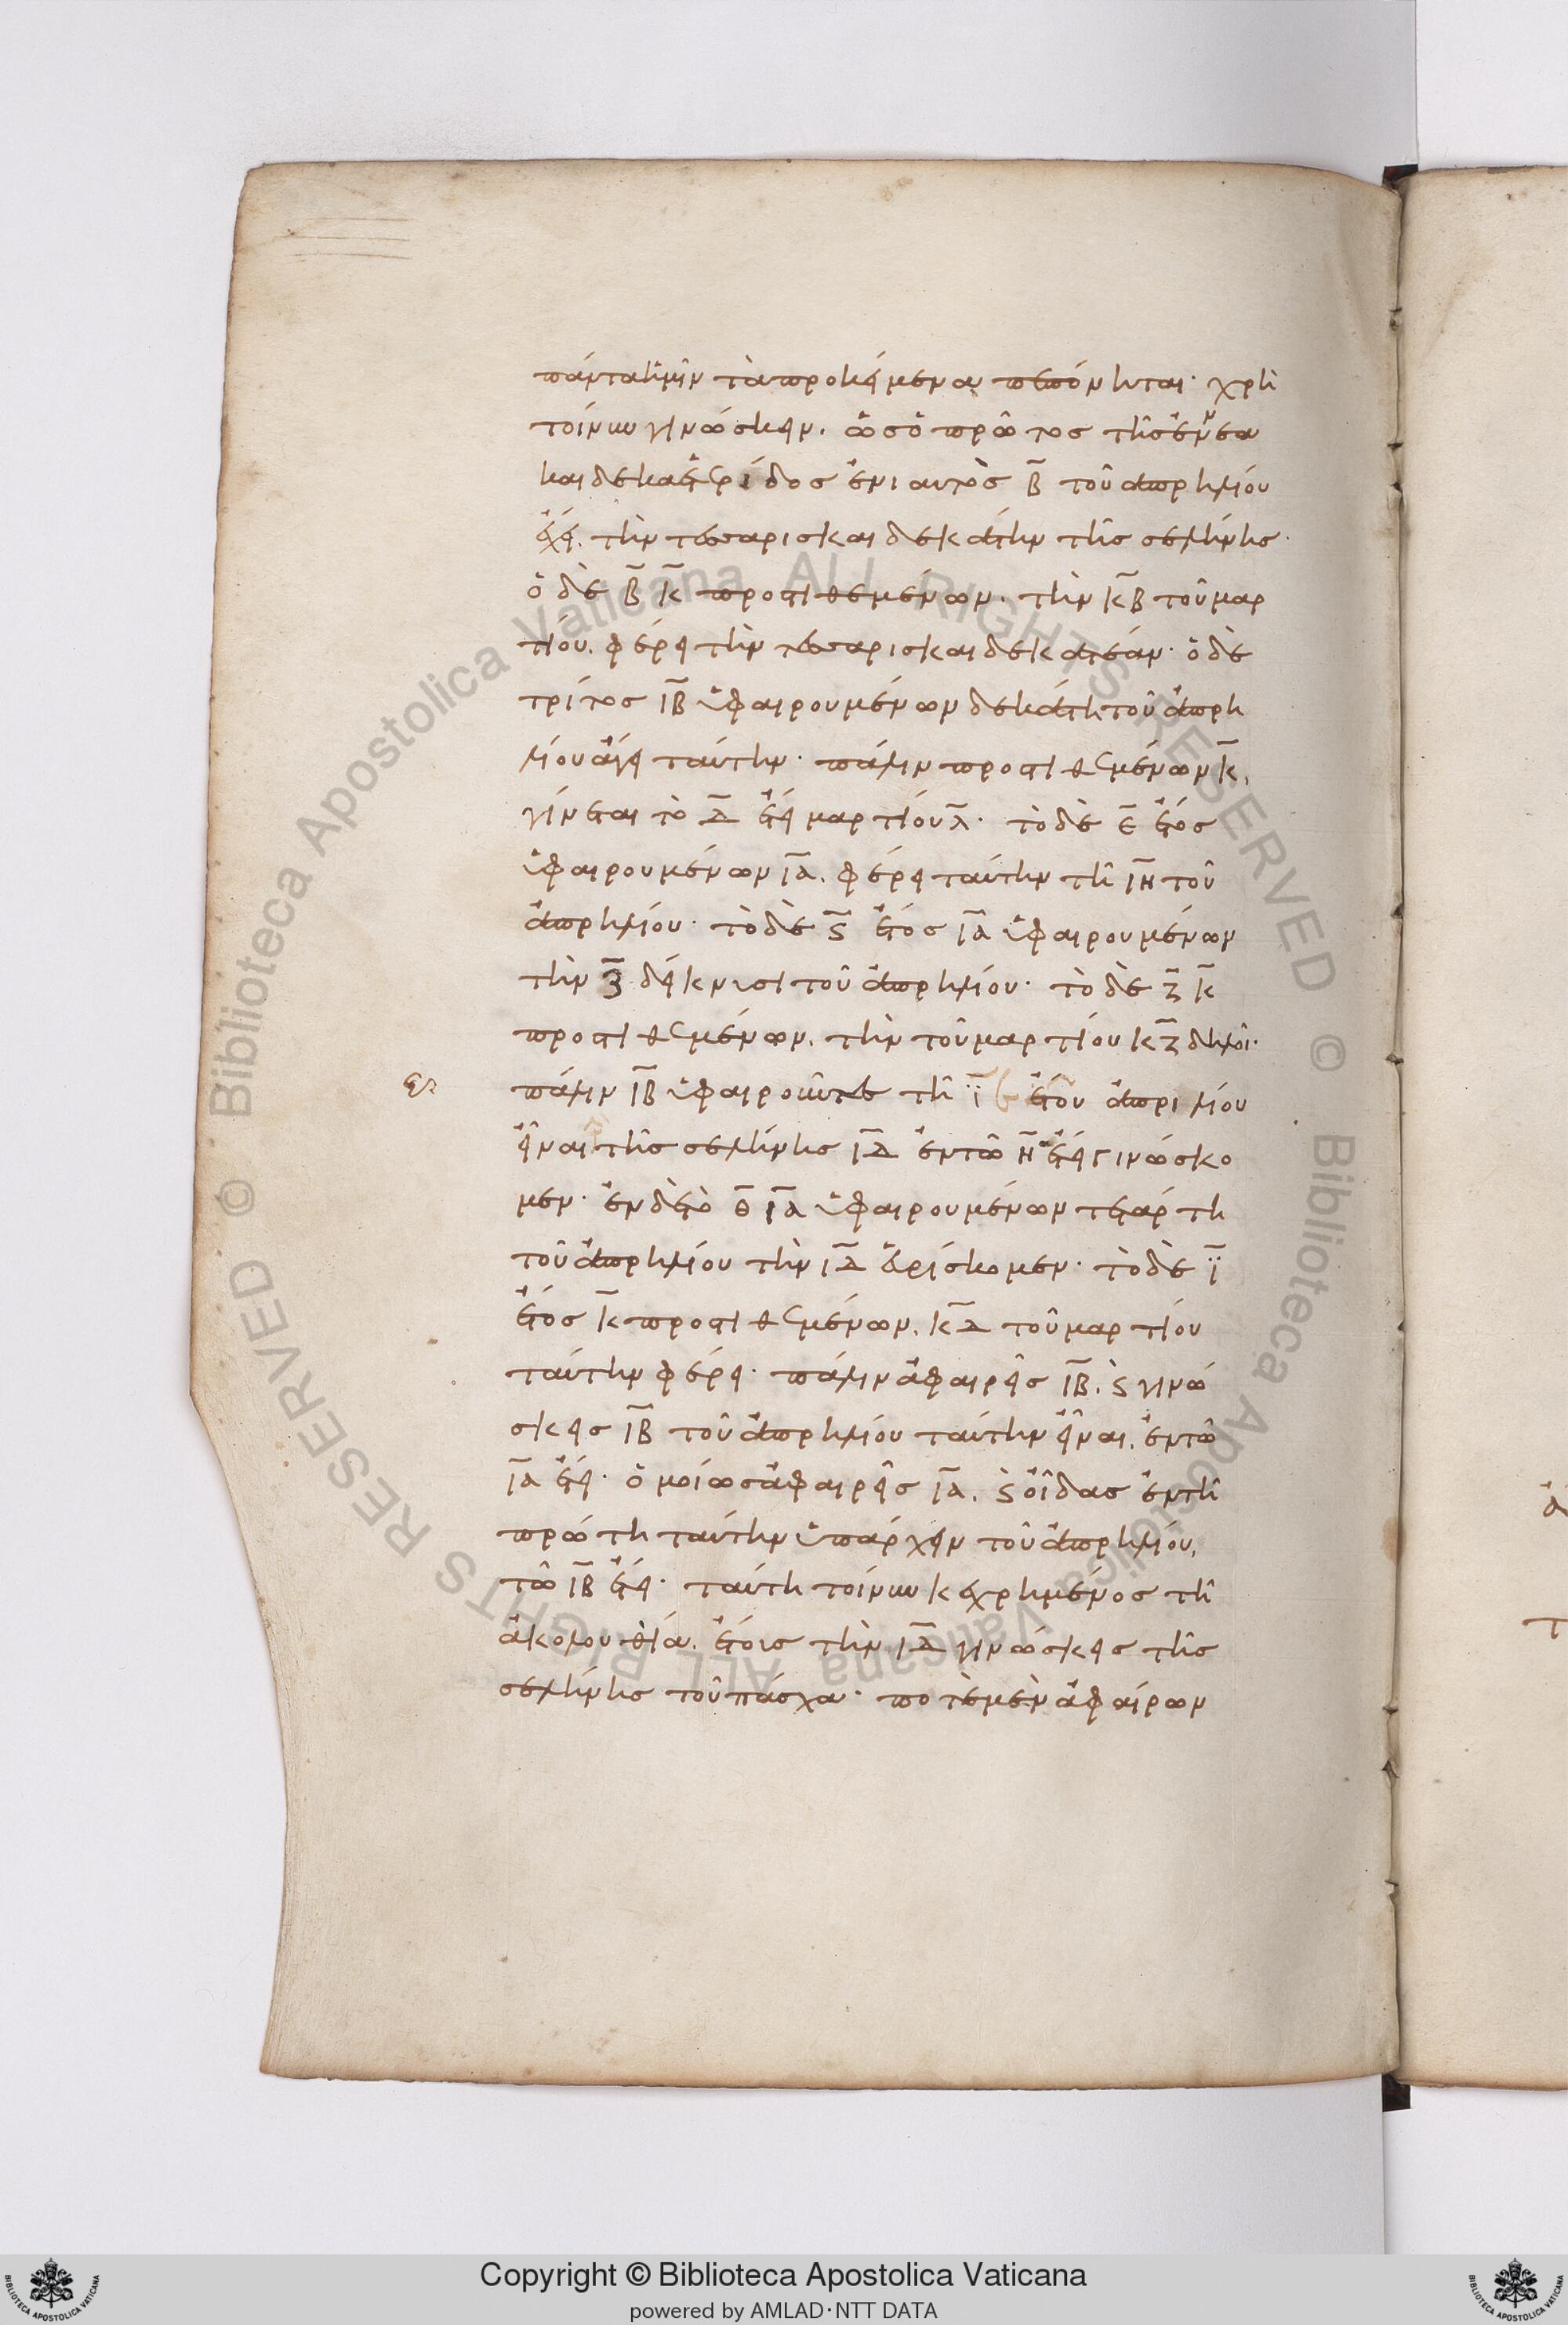 πάντα ἡμῖν τὰ προκείμενα πεπόνηται· χρὴ
τοίνυν γινώσκειν. ὡς ὁ πρῶτος τῆς ἐννεα
καιδεκαετηρίδος ἐνιαυτὸς β̅ τοῦ ἀπρηλίου
ἔχει. τὴν τεσσαρισκαιδεκάτην τῆς σελήνης·
ὁ δὲ β̅ κ̅ προστιθεμένων. τὴν κ̅β̅ τοῦ μαρ
τίου. φέρει τὴν τεσσαρισκαιδεκαταίαν· ὁ δὲ
τρίτος ι̅β̅ ὑφαιρουμένων δεκάτη τοῦ ἀπρη
λίου ἄγει ταύτην· πάλιν προστιθεμένων κ̅,
γίνεται τὸ δ̅ ἔτει μαρτίου λ̅· τὸ δὲ ε̅ ἔτος
ὑφαιρουμένων ι̅α̅. φέρει ταύτην τῆ ι̅η̅ τοῦ
ἀπρηλίου· τὸ δὲ ϛ̅ ἔτος ι̅α̅ ὑφαιρουμένων
τὴν ζ̅ δείκνυσι τοῦ ἀπρηλίου· τὸ δὲ ζ̅ κ̅
προστιθεμένων. τὴν τοῦ μαρτίου κ̅ζ̅ δηλοῖ·
πάλιν ι̅β̅ ὑφαιροῦντες τῆ ι̅ε̅ τοῦ ἀπριλίου
εἶναι τῆς σελήνης ι̅δ̅ ἐν τῶ η̅ ἔτει γινώσκο
μεν· ἐν δὲ τὸ θ̅ ι̅α̅ ὑφαιρουμένων τετάρτη
τοῦ ἀπρηλίου τὴν ι̅δ̅ εὑρίσκομεν· τὸ δὲ ϊ̅
ἔτος κ̅ προστιθεμένων. κ̅δ̅ τοῦ μαρτίου
ταύτην φέρει· πάλιν ἀφαιρεῖς ι̅β̅. ϛ γινώ
σκεις ι̅β̅ τοῦ ἀπρηλίου ταύτην εἶναι. ἐν τῶ
ι̅α̅ ἔτει· ὁμοίως ἀφαιρεῖς ι̅α̅. ϛ οἶδας ἐν τῆ
πρώτη ταύτην ὑπάρχειν τοῦ ἀπρηλίου,
τῶ ι̅β̅ ἔτει· ταύτη τοίνυν κεχρημένος τῆ
ἀκολουθία. ἔτοις τὴν ι̅δ̅ γινώσκεις τῆς
σελήνης τοῦ πάσχα· ποτὲ μὲν ἀφαίρων